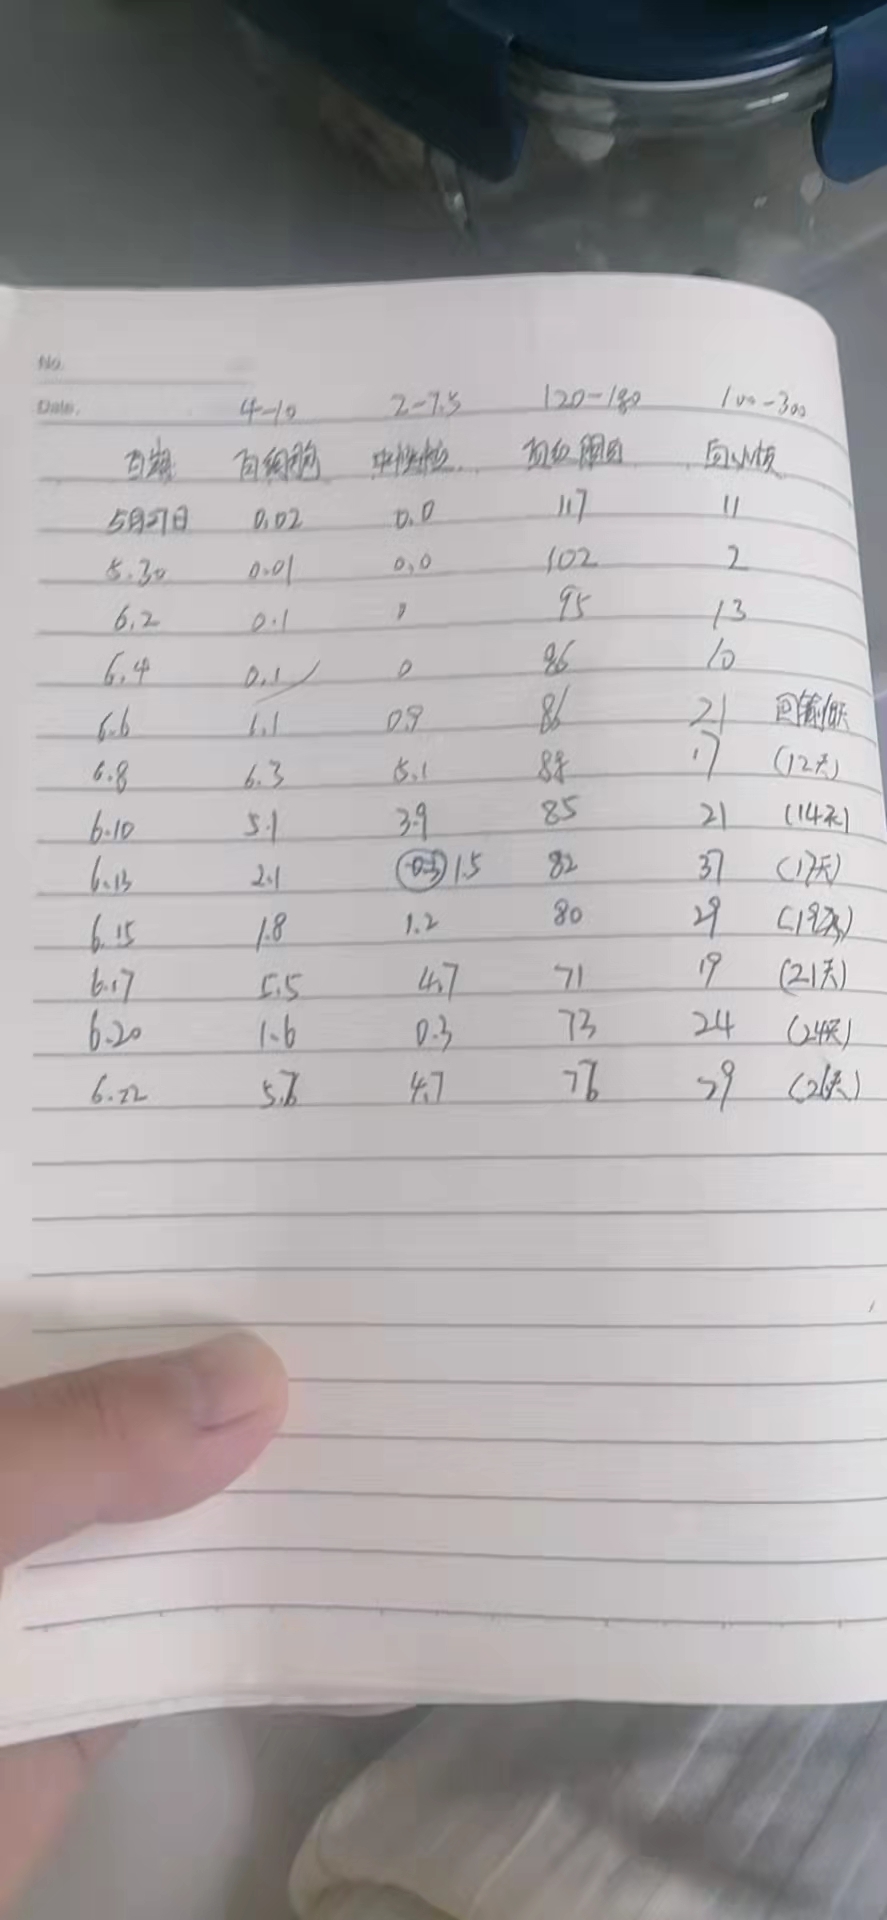 No.
Date. 4-10 2-7.5 120-180 100-300
日期 白细胞 中性粒 血红蛋白 血小板
5月27日 0.02 0.0 117 11
5.30 0.01 0.0 102 2
6.2 0.1 0 95 13
6.4 0.1 0 86 10
6.6 1.1 0.9 86 21 回输10天
6.8 6.3 5.1 88 17 (12天)
6.10 5.1 3.9 85 21 (14天)
6.13 2.1 1.5 82 37 (17天)
6.15 1.8 1.2 80 29 (19天)
6.17 5.5 4.7 71 19 (21天)
6.20 1.6 0.3 73 24 (24天)
6.22 5.6 4.7 76 29 (26天)